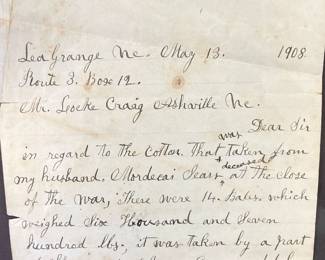 LaGrange Nc. May 13. 1908
Route 3. Box 12.
Mr. Locke Craig Ashville Nc.
Dear Sir
in regard to the Cotton. That was taken from
my husband. Mordecai Sears deceased at the close
of the war, There were 14. Bales. which
weighed Six Thousand and Seven
hundred lbs, it was taken by a part